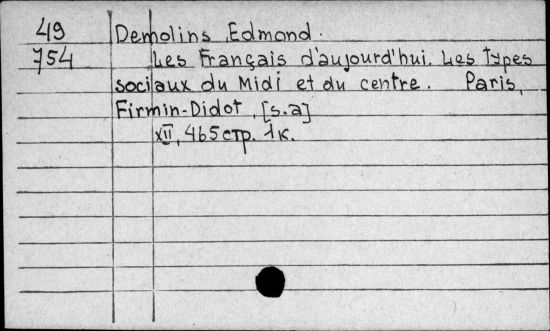 49 Demolins, Edmond.
754 Les Français d'aujourd'hui. Les Types
sociaux du Midi et du centre. Paris,
Firmin-Didot, [s.a]
XII, 465 стр. 1к.